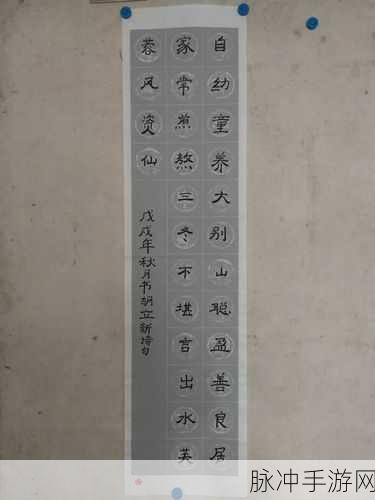 自幼童养大别山聪盈善良居
家常煎熬三冬不堪言出水芙
蓉风资仙
戊戌年秋月书胡立新诗句
脉冲手游网